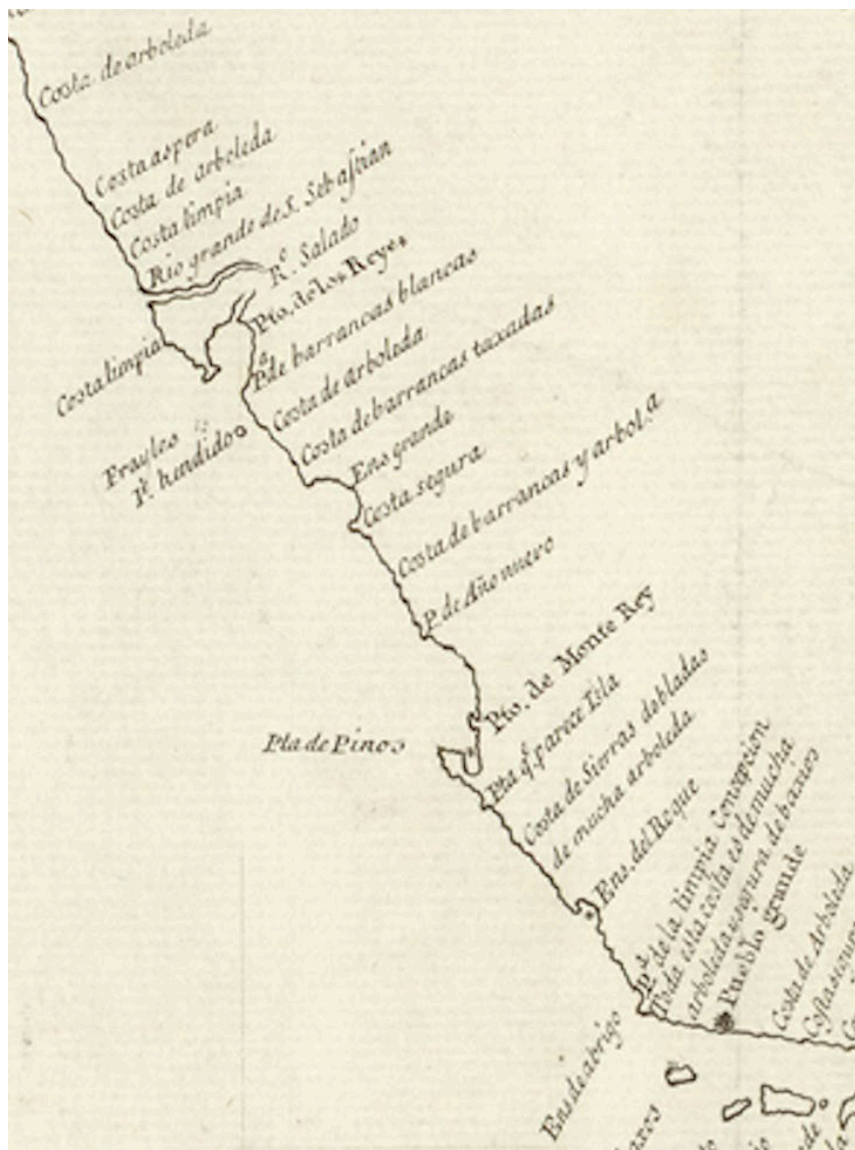 Costa de arboleda
Costa aspera
Costa de arboleda
Costa limpia
Rio grande de S. Sebastian
Ro. Salado
Pto. de los Reyes
Costa limpia
Pa. de barrancas blancas
Costa de arboleda
Costa de barrancas taxadas
Frayles
hendido
Ens grande
Costa segura
Costa de barrancas y arbola
P. de Año nuevo
Pto. de Monte Rey
Pta de Pinos
Pta qe. parece Isla
Costa de Sierras dobladas
de mucha arboleda
Ens. del Roque
Pa. de la limpia Concepcion
Toda esta costa es de mucha
arboleda y segura de baxios
Pueblo grande
Costa de Arboleda
Costa segura
Ens de abrigo